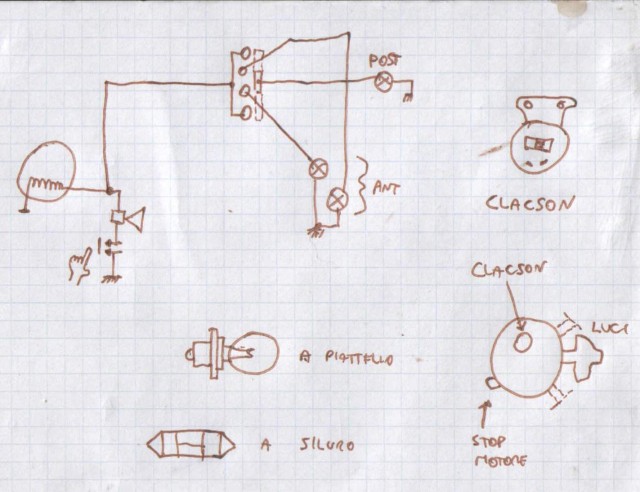 POST
ANT
CLACSON
CLACSON
LUCI
A PIATTELLO
A SILURO
STOP
MOTORE